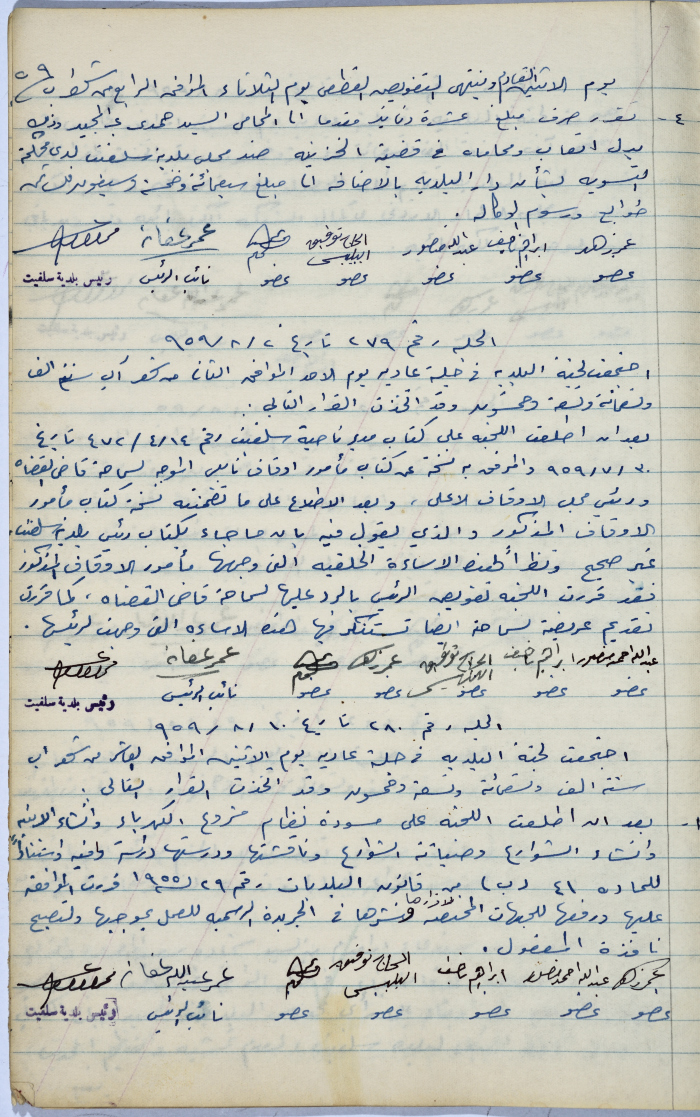 يوم الاثنين القادم وينتهي التفويض القطعي يوم الثلاثاء الموافق الرابع من شهر آب ٥٩
٤- تقرر صرف مبلغ عشرة دنانير مقدما الى المحامي السيد حمدي عبد المجيد وذلك
بدل اتعاب ومحاماه في قضية الخزينه ضد مجلس بلدية سلفيت لدى محكمة
التسويه بشأن دار البلديه بالاضافه الى مبلغ سبعمائة وخمسة وسبعون فلس ثمن
طوابع ورسوم الوكاله .
عمر زهد ابراهيم ناصيف عبدالله منصور الحاج توفيق البلبيسي عمر عفانة
عضو عضو عضو عضو عضو نائب الرئيس رئيس بلدية سلفيت
الجلسه رقم ٢٧٩ تاريخ ٢/٨/٩٥٩
اجتمعت لجنة البلديه في جلسة عاديه يوم الاحد الموافق الثاني من شهر آب سنة الف
وتسمائة وتسعة وخمسون وقد اتخذت القرار التالي .
بعد ان اطلعت اللجنه على كتاب مدير ناحية سلفيت رقم ٤٧٢/٤/١٤ تاريخ
٣٠/٧/٩٥٩ والمرفق به نسخة عن كتاب مأمور اوقاف نابلس الموجه لسماحة قاضي القضاه
ورئيس مجلس الاوقاف الاعلى ، وبعد الاطلاع على ما تضمنته نسخة كتاب مأمور
الاوقاف المذكور والذي يقول فيه بان ما جاء بكتاب رئيس بلدية سلفيت
غير صحيح ونظرا لهذه الاساءة الخلقيه التي وجهها مأمور الاوقاف المذكور
فقد قررت اللجنه تفويض الرئيس بالرد عليها لسماحة قاضي القضاه ، كما قررت
تقديم عريضة لسماحته ايضا تستنكر فيها هذه الاساءه التي وجهت لرئيسها .
عبدالله احمد منصور ابراهيم ناصيف الحاج توفيق البلبيسي عمر زهد عمر عفانة
عضو عضو عضو عضو عضو نائب الرئيس رئيس بلدية سلفيت
الجلسه رقم ٢٨٠ تاريخ ١٠/٨/٩٥٩
اجتمعت لجنة البلديه في جلسة عاديه يوم الاثنين الموافق العاشر من شهر اب
سنة الف وتسمائة وتسعة وخمسون وقد اتخذت القرار التالي .
١- بعد ان اطلعت اللجنه على مسودة نظام مشروع الكهرباء وانشاء الابنيه
وانشاء الشوارع وصيانة الشوارع وناقشتها ودرستها دراسة وافيه واستنادا
للماده ٤١ (ب) من قانون البلديات رقم ٢٩ ١٩٥٥ قررت الموافقه
عليها ورفعها للجهات المختصه لاقرارها ونشرها في الجريدة الرسميه للعمل بموجبها ولتصبح
نافذة المفعول .
عمر زهد عبدالله احمد منصور ابراهيم ناصيف الحاج توفيق البلبيسي عمر عبدالله عفانة
عضو عضو عضو عضو عضو نائب الرئيس رئيس بلدية سلفيت